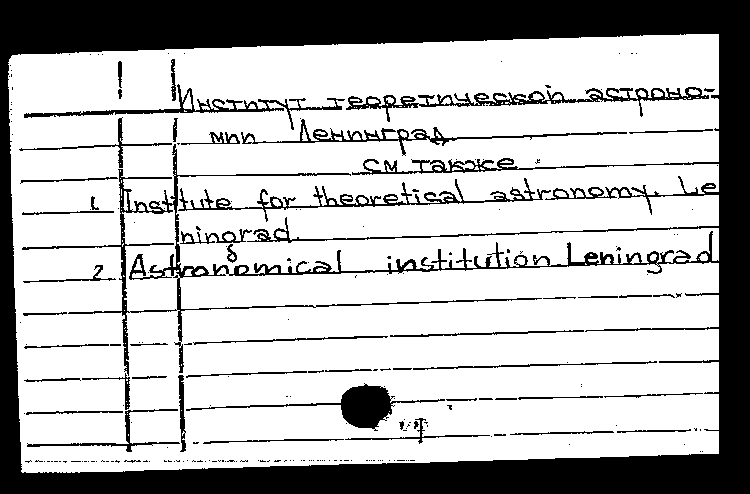 Институт теоретической астроно-
мии Ленинград
см также
1. Institute for theoretical astronomy. Le
ningrad.
2 Astronomical institution Leningrad